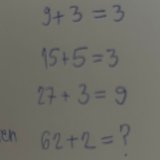 9+3=3
15+5=3
27+3=9
62+2=?